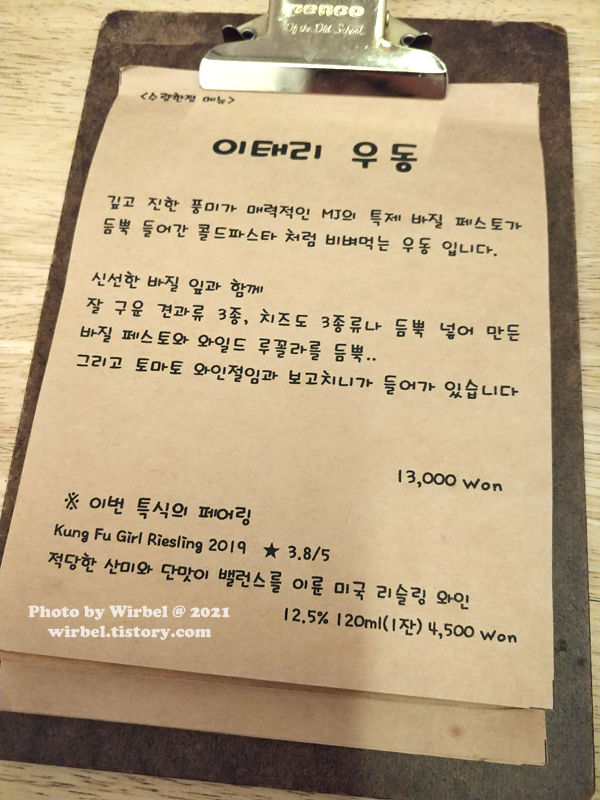 penco
Of the Old School
<수량한정 메뉴>
이태리 우동
깊고 진한 풍미가 매력적인 MJ의 특제 바질 페스토가
듬뿍 들어간 콜드파스타 처럼 비벼먹는 우동 입니다.
신선한 바질 잎과 함께
잘 구운 견과류 3종, 치즈도 3종류나 듬뿍 넣어 만든
바질 페스토와 와일드 루꼴라를 듬뿍..
그리고 토마토 와인절임과 보고치니가 들어가 있습니다
13,000 Won
※ 이번 특식의 페어링
Kung Fu Girl Riesling 2019 ★ 3.8/5
적당한 산미와 단맛이 밸런스를 이룬 미국 리슬링 와인
12.5% 120ml(1잔) 4,500 Won
Photo by Wirbel @ 2021
wirbel.tistory.com